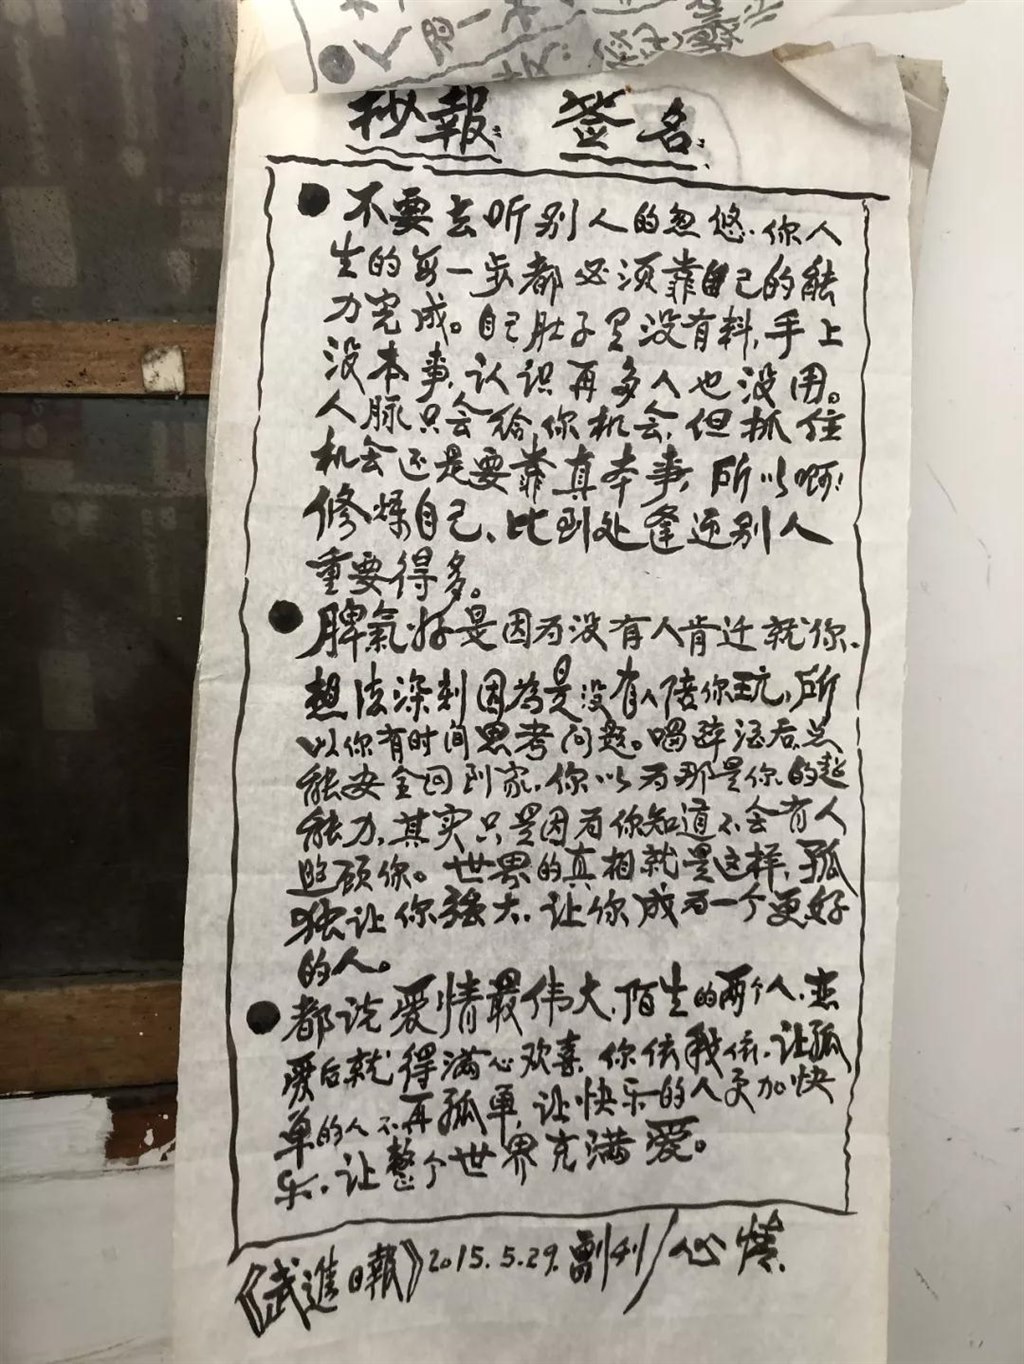 人間一
秒報: 签名:
● 不要去听别人的忽悠.你人
生的每一步都必须靠自己的能
力完成。自己肚子里没有料,手上
没本事,认识再多人也没用。
人脉只会给你机会,但抓住
机会还是要靠真本事,所以啊!
修煉自己、比到处逢迎别人
重要得多。
● 脾氣好是因为没有人肯迁就你、
想法深刻因為是没有人陪你玩,所
以你有时间思考问题。喝醉酒后总
能安全回到家,你以为那是你的超
能力,其实只是因为你知道不会有人
照顾你。世界的真相就是这样,孤
独让你强大,让你成为一个更好
的人。
● 都说爱情最伟大,陌生的两个人,恋
爱后就得满心欢喜,你依我依,让孤
单的人不再孤單,让快乐的人更加快
乐,让整个世界充满爱。
《武進日報》2015.5.29.副刊/心情.